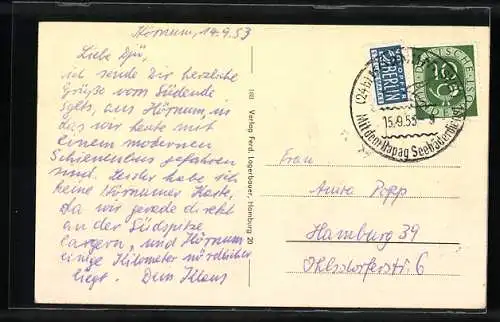 Hörnum, 14.9.53
Liebe
ich sende Dir herzliche
Grüße vom Südende
Sylts, aus Hörnum, in
das wir heute mit
einem modernen
Schienenbus gefahren
sind. Leider habe ich
keine Hörnumer Karte,
da wir gerade direkt
an der Südspitze
lagern, und Hörnum
einige Kilometer nördlicher
liegt. Dein Klaus
Verlag Ferd. Lagerbauer, Hamburg 20
NOTOPFER
2 BERLIN
DEUTSCHE POST
10
(24b)
15.-9.53
Mit dem Hapag Seebäderdienst
Frau
Anita Popp
Hamburg 39
Ohlsdorferstr. 6